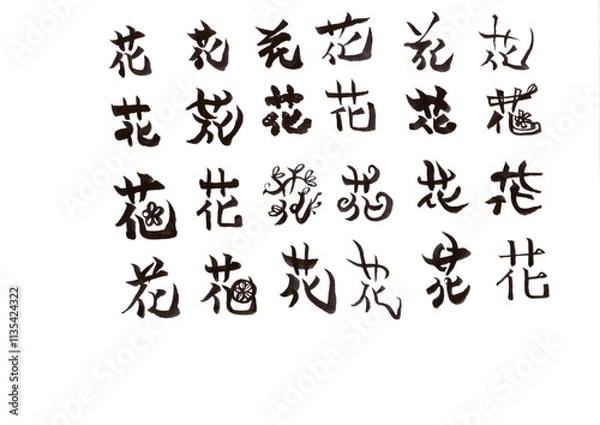 花 花 花 花 花 花
花 花 花 花 花 花
花 花 花 花 花 花
花 花 花 花 花 花
Adobe Stock | #1135424322